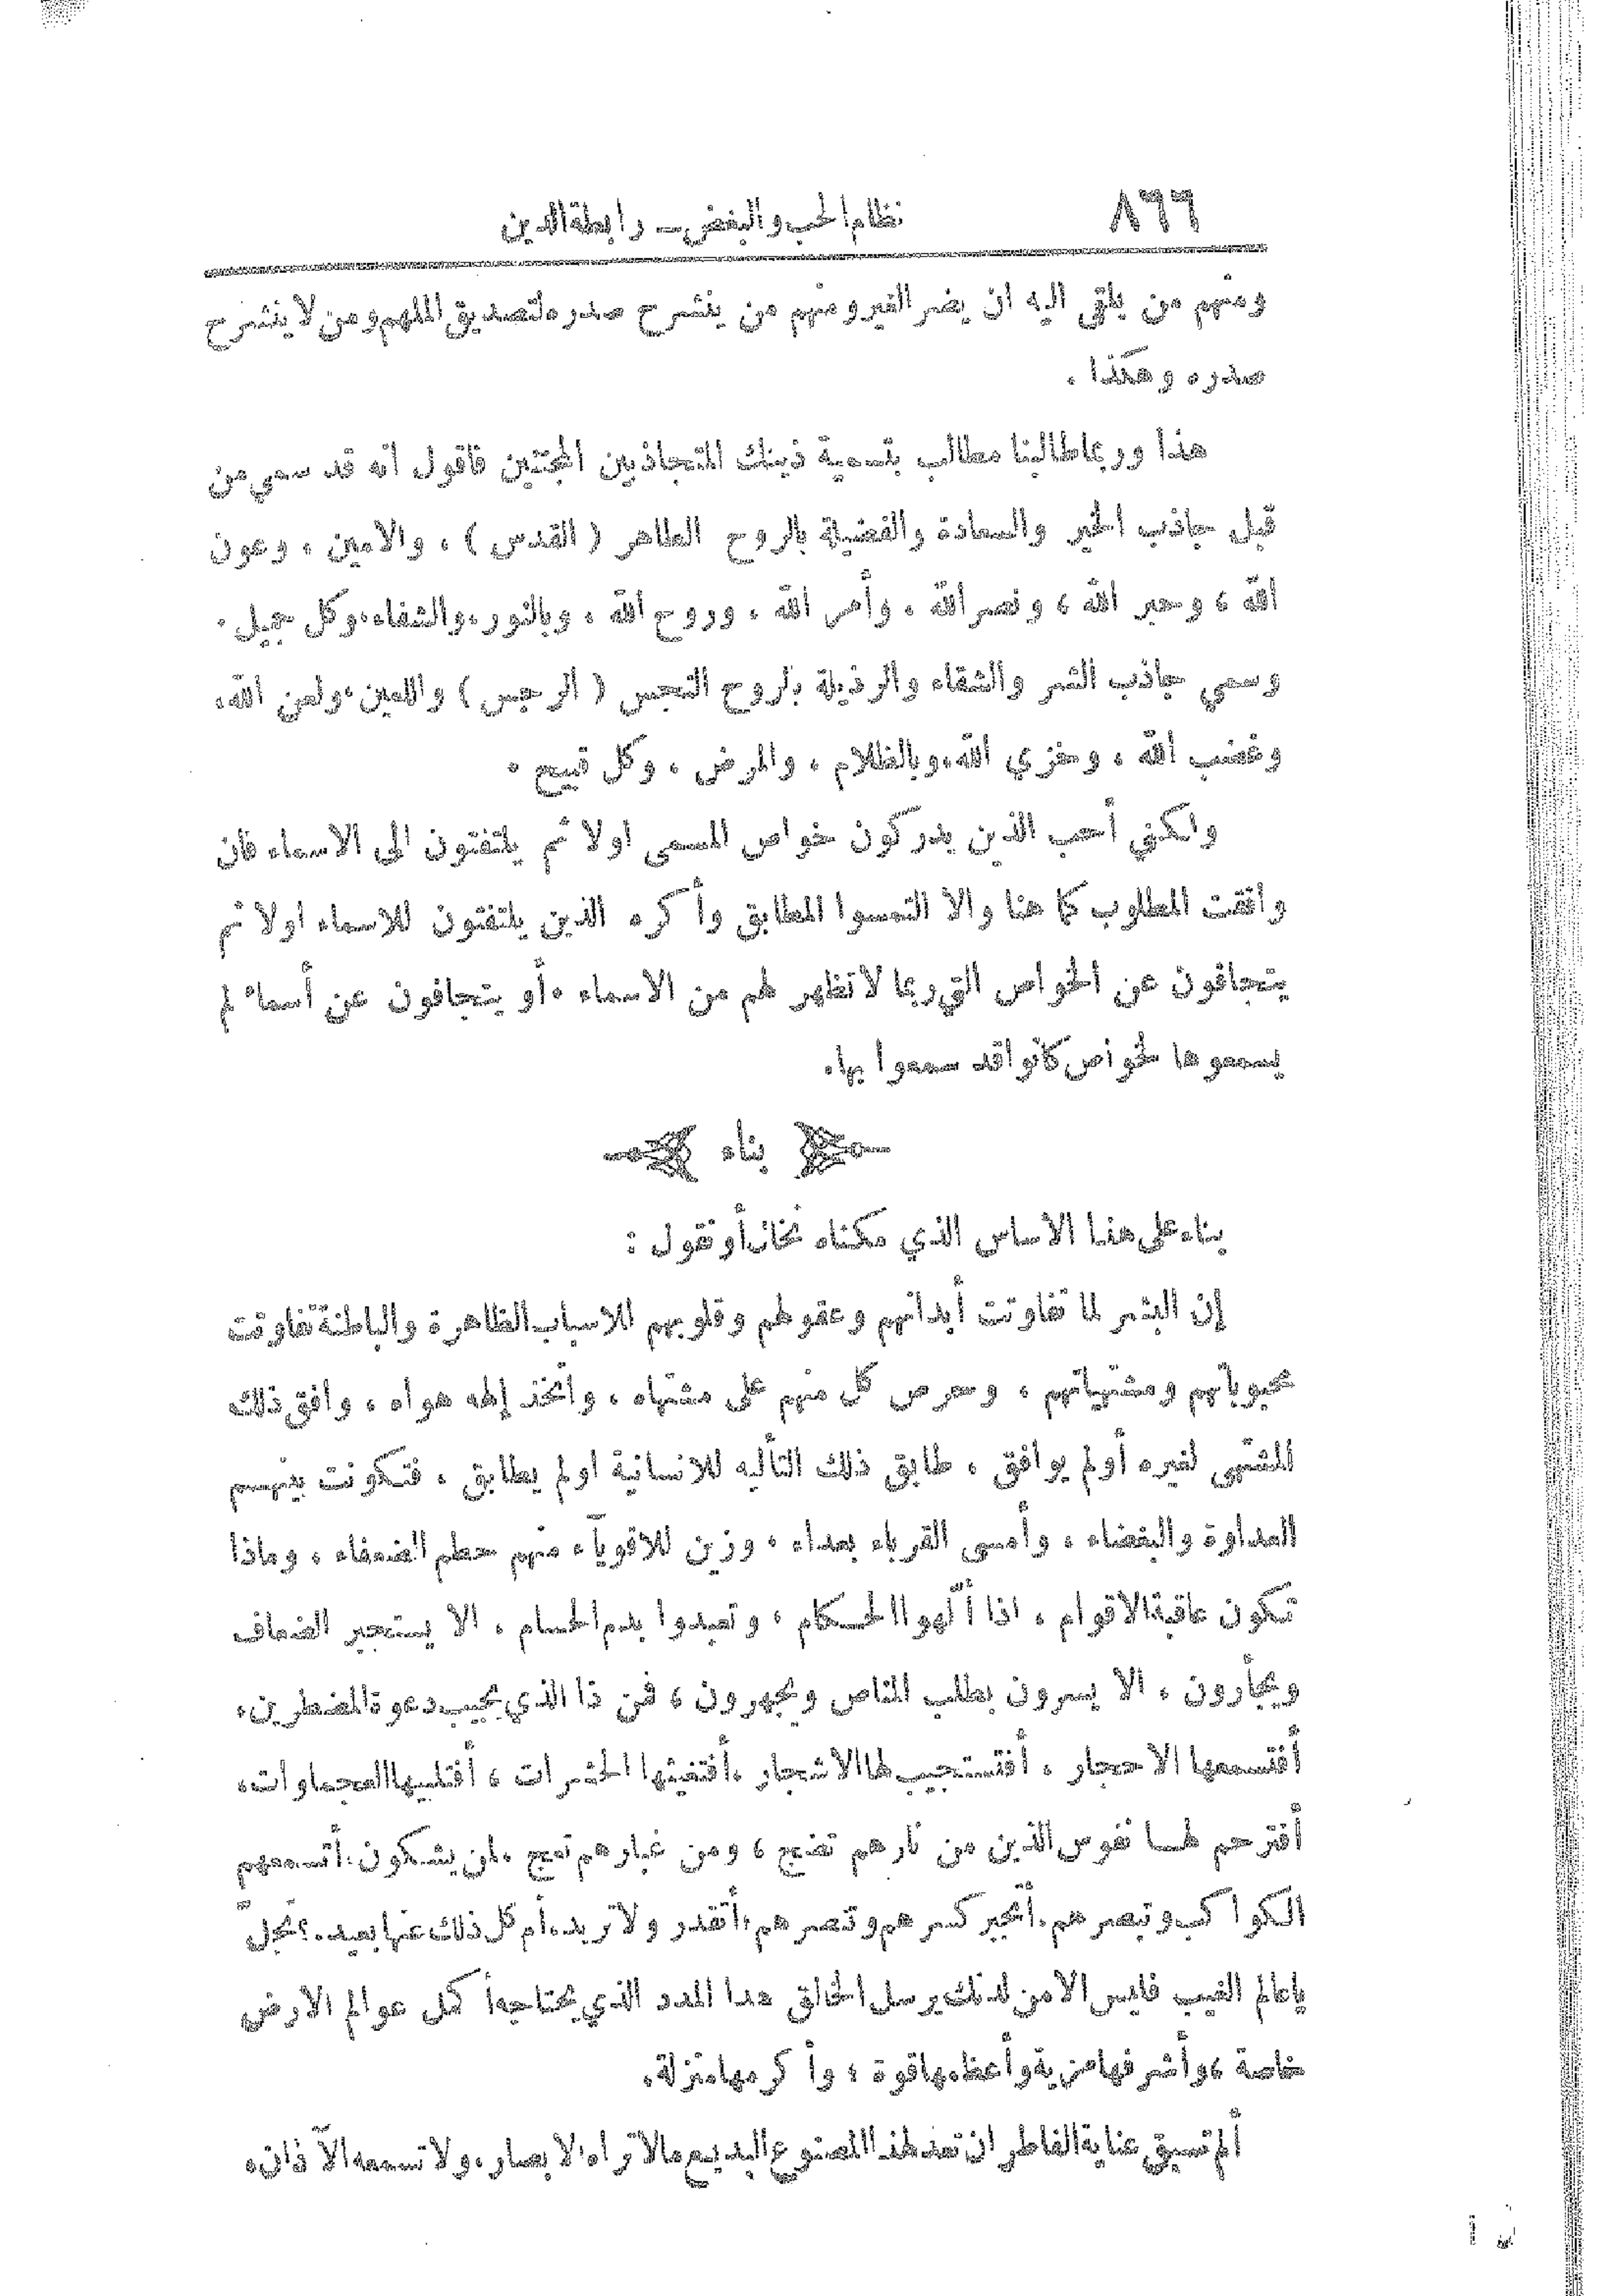 ٨٦٦
نظام الحب والبغض — رابطة الدين
ومنهم من يلقى اليه ان يضر الغير ومنهم من ينشرح صدره لتصديق الملهم ومن لا ينشرح
صدره وهكذا .
هذا وربما طالبنا مطالب بتسمية ذينك المتجاذبين المجتنين فاقول انه قد سمي من
قبل جاذب الخير والسعادة والفضيلة بالروح الطاهر ( القدس ) ، والامين ، وعون
الله ، وحبر الله ، ونصر الله ، وأمر الله ، وروح الله ، وبالنور، والشفاء، وكل جميل ·
وسمي جاذب الشر والشقاء والرذيلة بالروح النجس ( الرجس ) واللعين، ولعن الله،
وغضب الله ، وخزي الله، وبالظلام ، والمرض ، وكل قبيح ·
ولكني أحب الذين يدركون خواص المسمى اولا ثم يلتفتون الى الاسماء فان
وافقت المطلوب كما هنا والا التمسوا المطابق وأكره الذين يلتفتون للاسماء اولا ثم
يتجافون عن الخواص التي ربما لا تظهر لهم من الاسماء ، أو يتجافون عن أسماء لم
يسمعوها لخواص كانوا قد سمعوا بها.
بناء
بناء على هذا الاساس الذي مكناه نحاز أو نقول :
إن البشر لما تفاوتت أبدانهم وعقولهم وقلوبهم للاسباب الظاهرة والباطنة تفاوتت
محبوباتهم ومشتهياتهم ، وحرص كل منهم على مشتهاه ، واتخذ إلهه هواه ، وافق ذلك
المشتهى لغيره أو لم يوافق ، طابق ذلك التأليه للانسانية او لم يطابق ، فتكونت بينهم
العداوة والبغضاء ، وأمسى القرباء بعداء ، وزين للاقوياء منهم حطم الضعفاء ، وماذا
تكون عاقبة الاقوام ، اذا ألهوا الحكام ، وتعبدوا بدم الحسام ، الا يستجير الضعاف
ويجأرون ، الا يسرون بطلب المناص ويجهرون ، فمن ذا الذي يجيب دعوة المضطرين،
أفتسمعها الاحجار ، أفتستجيب لها الاشجار ، أفتغيثها الحشرات ، أفتلبيها العجماوات،
أفترحم لهما نفوس الذين من نارهم تضج ، ومن غبارهم تعج ، لمن يشكون، أتسمعهم
الكواكب وتبصرهم، أتجبر كسرهم وتنصرهم، أتقدر ولا تريد، أم كل ذلك عنها بعيد، ؟ تجلّ
يا عالم الغيب فليس الا من لدنك يرسل الخالق هذا المدد الذي يحتاجه أكمل عوالم الارض
خاصة ، وأشرفها مزية وأعظمها قوة ، وأكرمها منزلة.
ألم تسبق عناية الفاطر ان تعد لهذا المصنوع البديع ما لا تراه الابصار، ولا تسمعه الآذان،